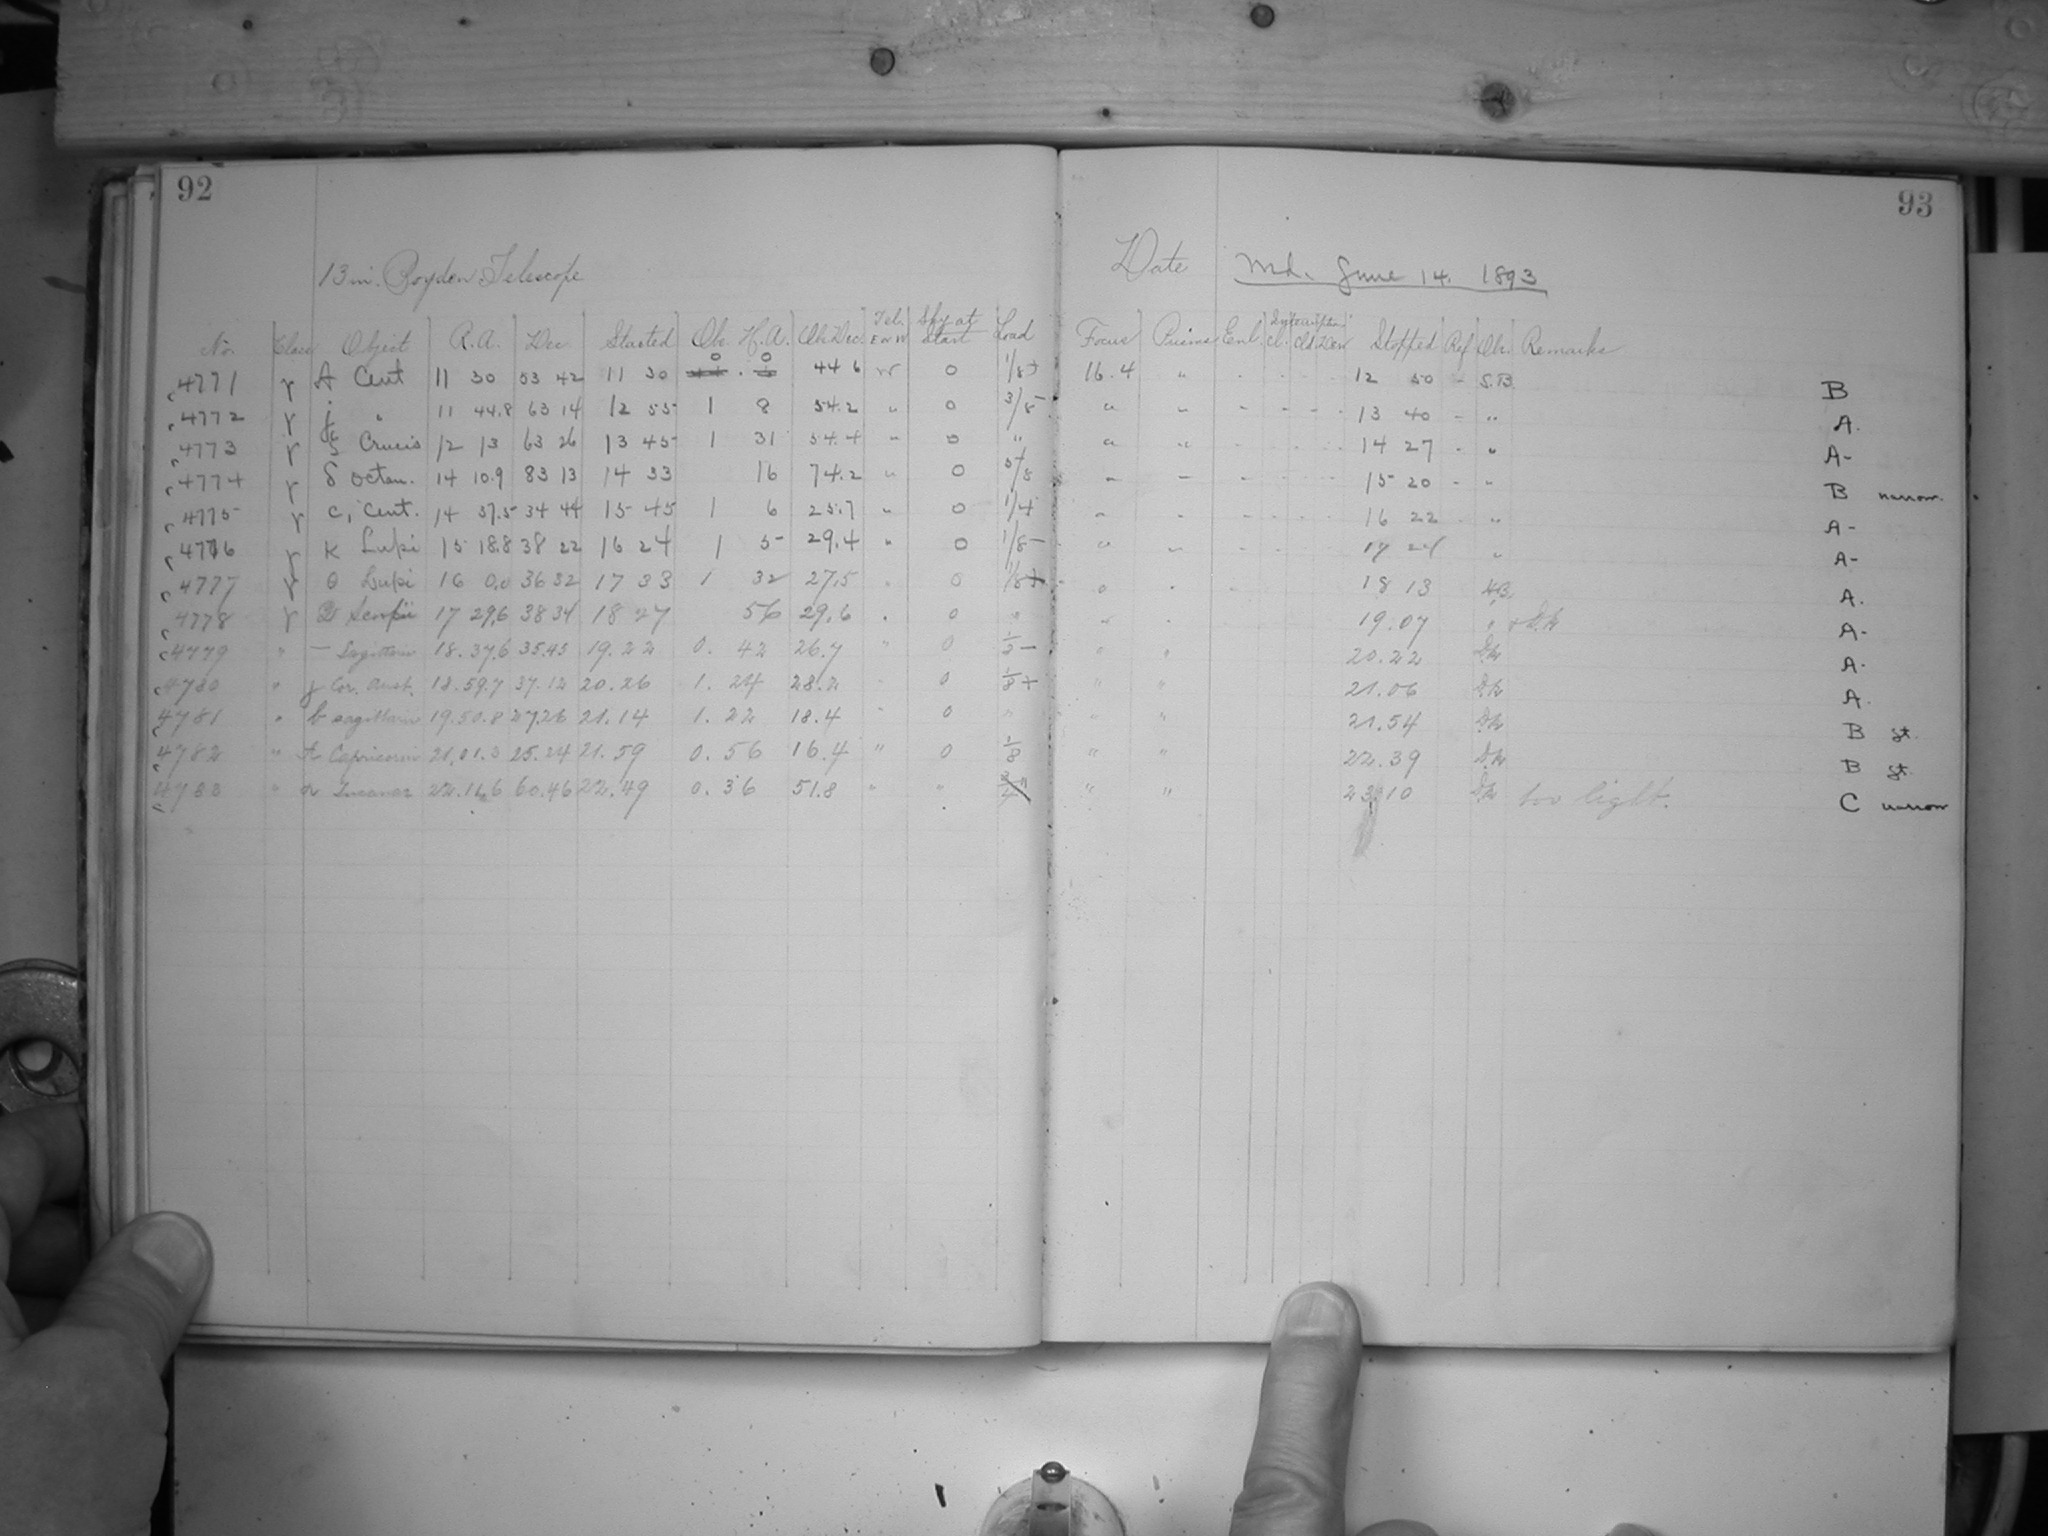 92
93
13 in. Boyden Telescope
Date Wd. June 14. 1893
No. Class Object R.A. Dec. Started Ob. H.A. Ob. Dec. Tel. E or W Sky at Start Load Focus Prisms Enl. Interruption Cl. Stopped Ref Ob. Remarks
4771 γ A Cent 11 30 53 42 11 30 0 0 44 6 W 0 1/8+ 16.4 " - - - - 12 50 - S.B. B
4772 γ j " 11 44.8 63 14 12 55 1 8 54.2 " 0 3/8- " " - - - - 13 40 - " A.
4773 γ ζ Crucis 12 13 63 26 13 45 1 31 54.4 " 0 " " " - - - - 14 27 - " A-
4774 γ δ Octan. 14 10.9 83 13 14 33 16 74.2 " 0 5/8 " " - - - - 15 20 - " B narrow.
4775 γ c, Cent. 14 37.5 34 44 15 45 1 6 25.7 " 0 1/4 " " - - - - 16 22 - " A-
4776 γ κ Lupi 15 18.8 38 22 16 24 1 5 29.4 " 0 1/8- " " - - - - 17 24 " A-
4777 γ θ Lupi 16 0.0 36 32 17 33 1 32 27.5 " 0 1/8+ 18 13 A.
4778 γ Scorpii 17 29.6 38 34 18 27 56 29.6 " 0 " " 19.07 " A-
4779 " — Sagittarii 18.37.6 35.45 19.22 0. 42 26.7 " 0 " " 20.22 A.
4780 " γ Cor. Aust. 18.59.7 37.12 20.26 1. 24 28.2 " 0 1/8+ " " 21.06 A.
4781 " b Sagittarii 19.50.8 27.26 21.14 1. 22 18.4 " 0 " " " 21.54 B st.
4782 " A Capricorni 21.01.3 25.24 21.59 0. 56 16.4 " 0 1/8 " " 22.39 B st.
4783 " α Tucanae 22.11.6 60.46 22.49 0. 36 51.8 " " " " 23.10 too light. C narrow